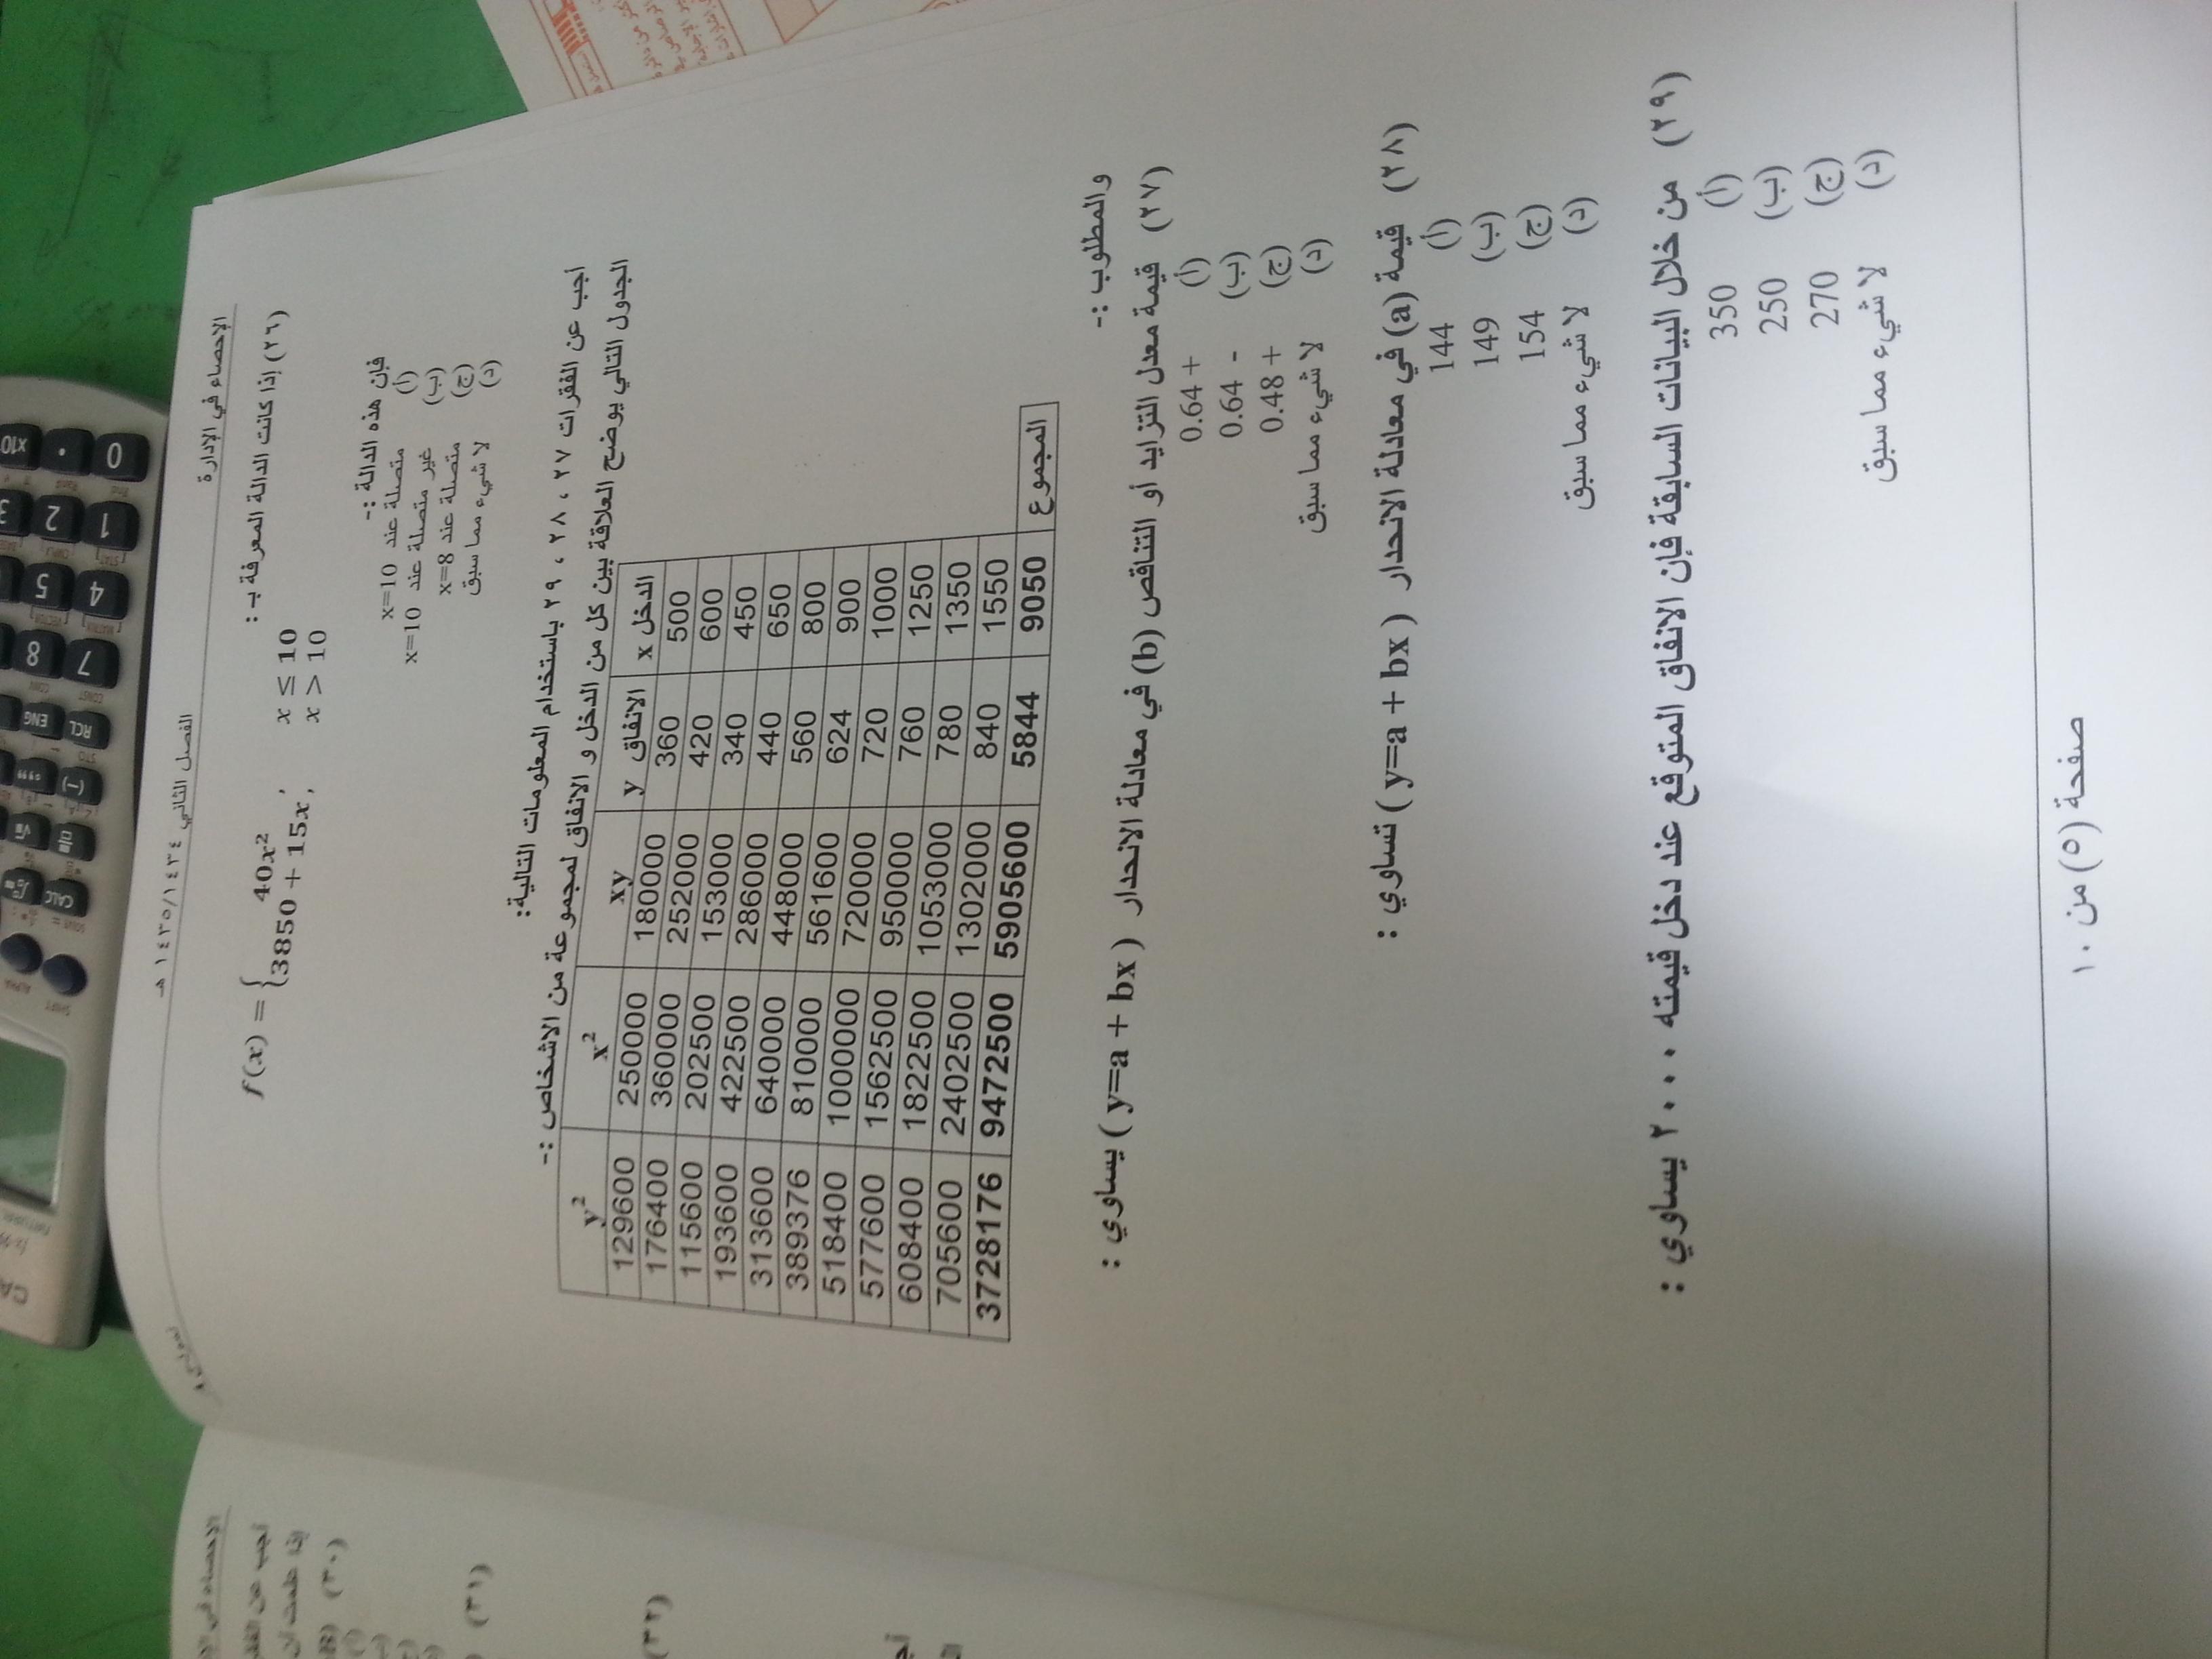 الإحصاء في الإدارة
الفصل الثاني ١٤٣٥/١٤٣٤ هـ
(٢٦) إذا كانت الدالة المعرفة بـ :
f(x) = { 40x² , x ≤ 10
3850 + 15x , x > 10
فإن هذه الدالة :-
(أ) متصلة عند x=10
(ب) غير متصلة عند x=10
(ج) متصلة عند x=8
(د) لا شيء مما سبق
أجب عن الفقرات ٢٧ ، ٢٨ ، ٢٩ باستخدام المعلومات التالية:
الجدول التالي يوضح العلاقة بين كل من الدخل و الانفاق لمجموعة من الاشخاص :-
الدخل x الانفاق y xy x² y²
500 360 180000 250000 129600
600 420 252000 360000 176400
450 340 153000 202500 115600
650 440 286000 422500 193600
800 560 448000 640000 313600
900 624 561600 810000 389376
1000 720 720000 1000000 518400
1250 760 950000 1562500 577600
1350 780 1053000 1822500 608400
1550 840 1302000 2402500 705600
المجموع 9050 5844 5905600 9472500 3728176
والمطلوب :-
(٢٧) قيمة معدل التزايد أو التناقص (b) في معادلة الانحدار ( y=a + bx ) يساوي :
(أ) 0.64 +
(ب) 0.64 -
(ج) 0.48 +
(د) لا شيء مما سبق
(٢٨) قيمة (a) في معادلة الانحدار ( y=a + bx ) تساوي :
(أ) 144
(ب) 149
(ج) 154
(د) لا شيء مما سبق
(٢٩) من خلال البيانات السابقة فإن الانفاق المتوقع عند دخل قيمته ٢٠٠٠ يساوي :
(أ) 350
(ب) 250
(ج) 270
(د) لا شيء مما سبق
صفحة (٥) من ١٠
(٣٠)
(٣١)
(٣٢)
0
.
x10
1
2
3
4
5
7
8
RCL
ENG
(-)
CALC
SHIFT
ALPHA